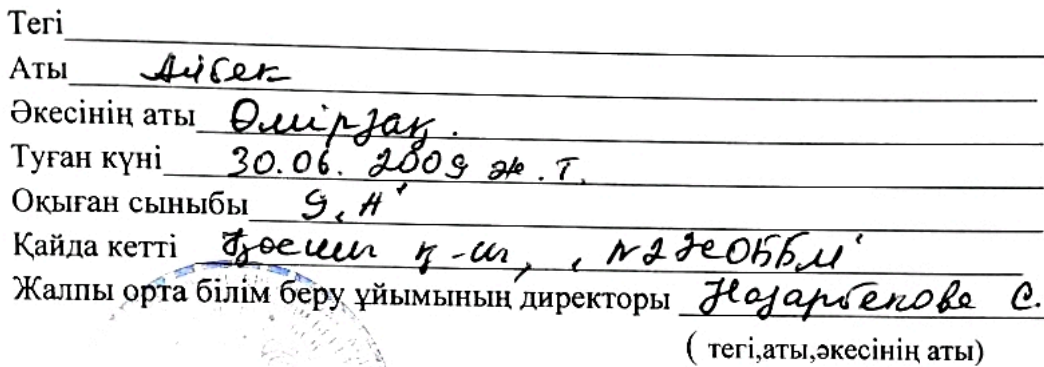 Тегі
Аты Айбек
Әкесінің аты Өмірзақ.
Туған күні 30.06.2009 ж.т.
Оқыған сыныбы 9 "А"
Қайда кетті қ-сы, "№2 ЖОББМ"
Жалпы орта білім беру ұйымының директоры Назарбекова С.
( тегі,аты,әкесінің аты)